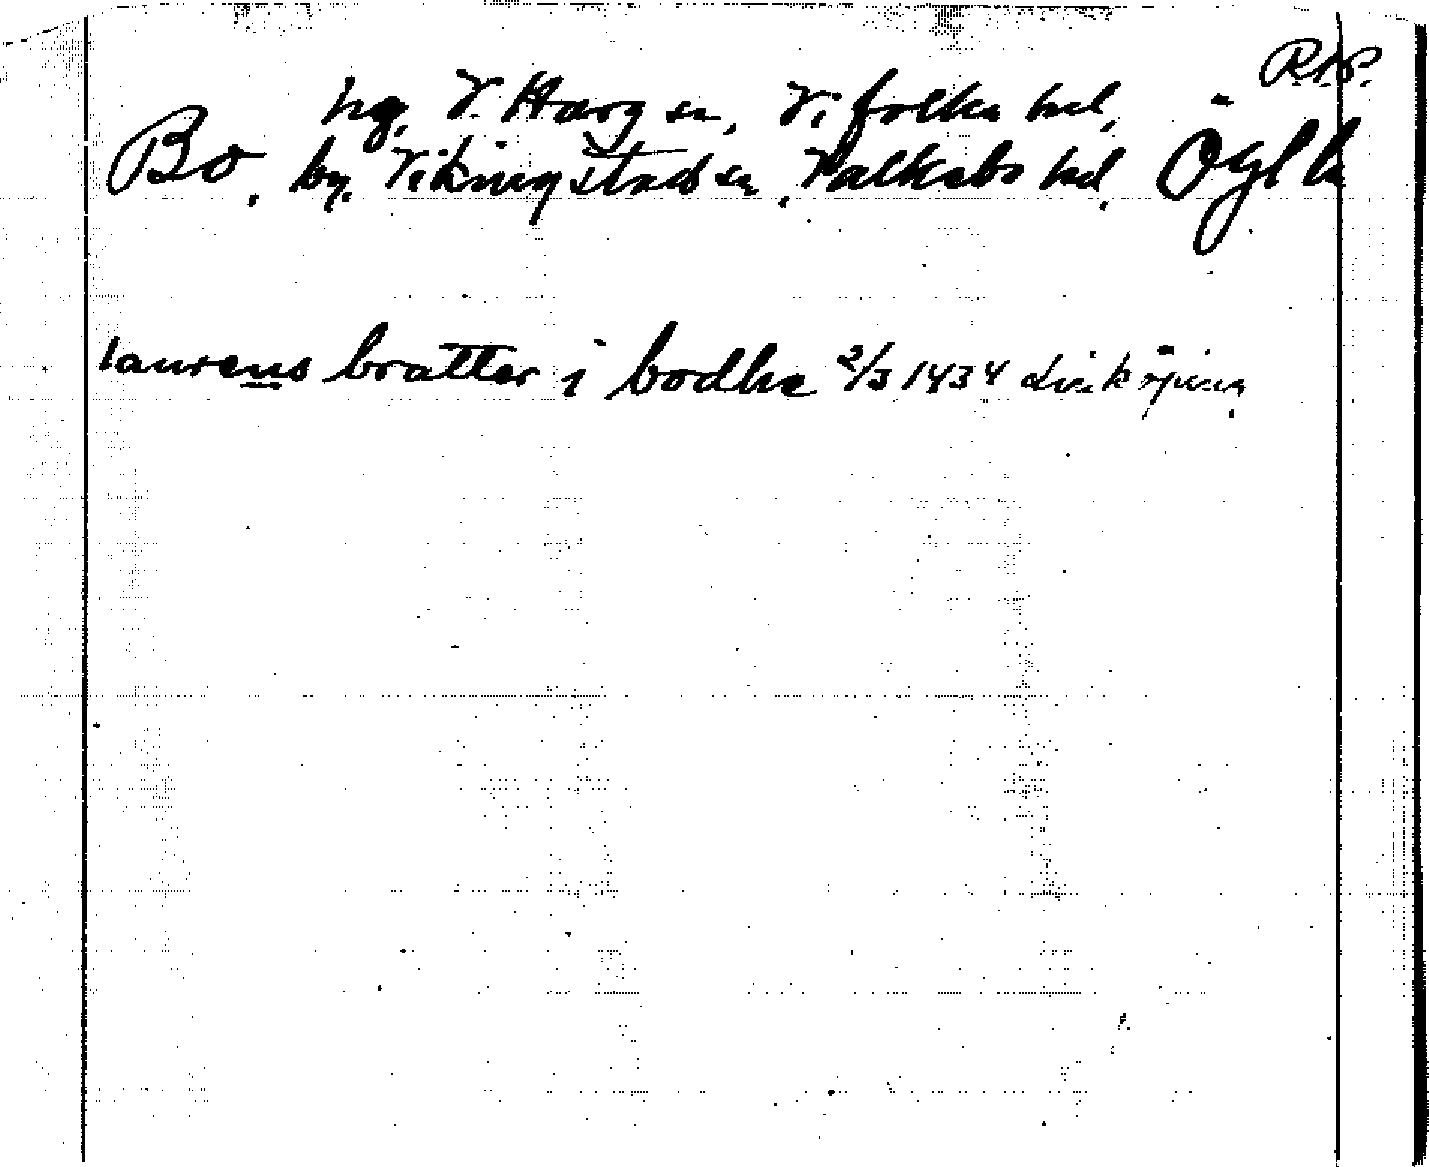 RAP.
hg, V. Harg sn, Vifolka hd,
Bo, by, Vikingstads sn, Valkebo hd, Ögtl
laurens bratter i bodhe 2/3 1434 Linköping